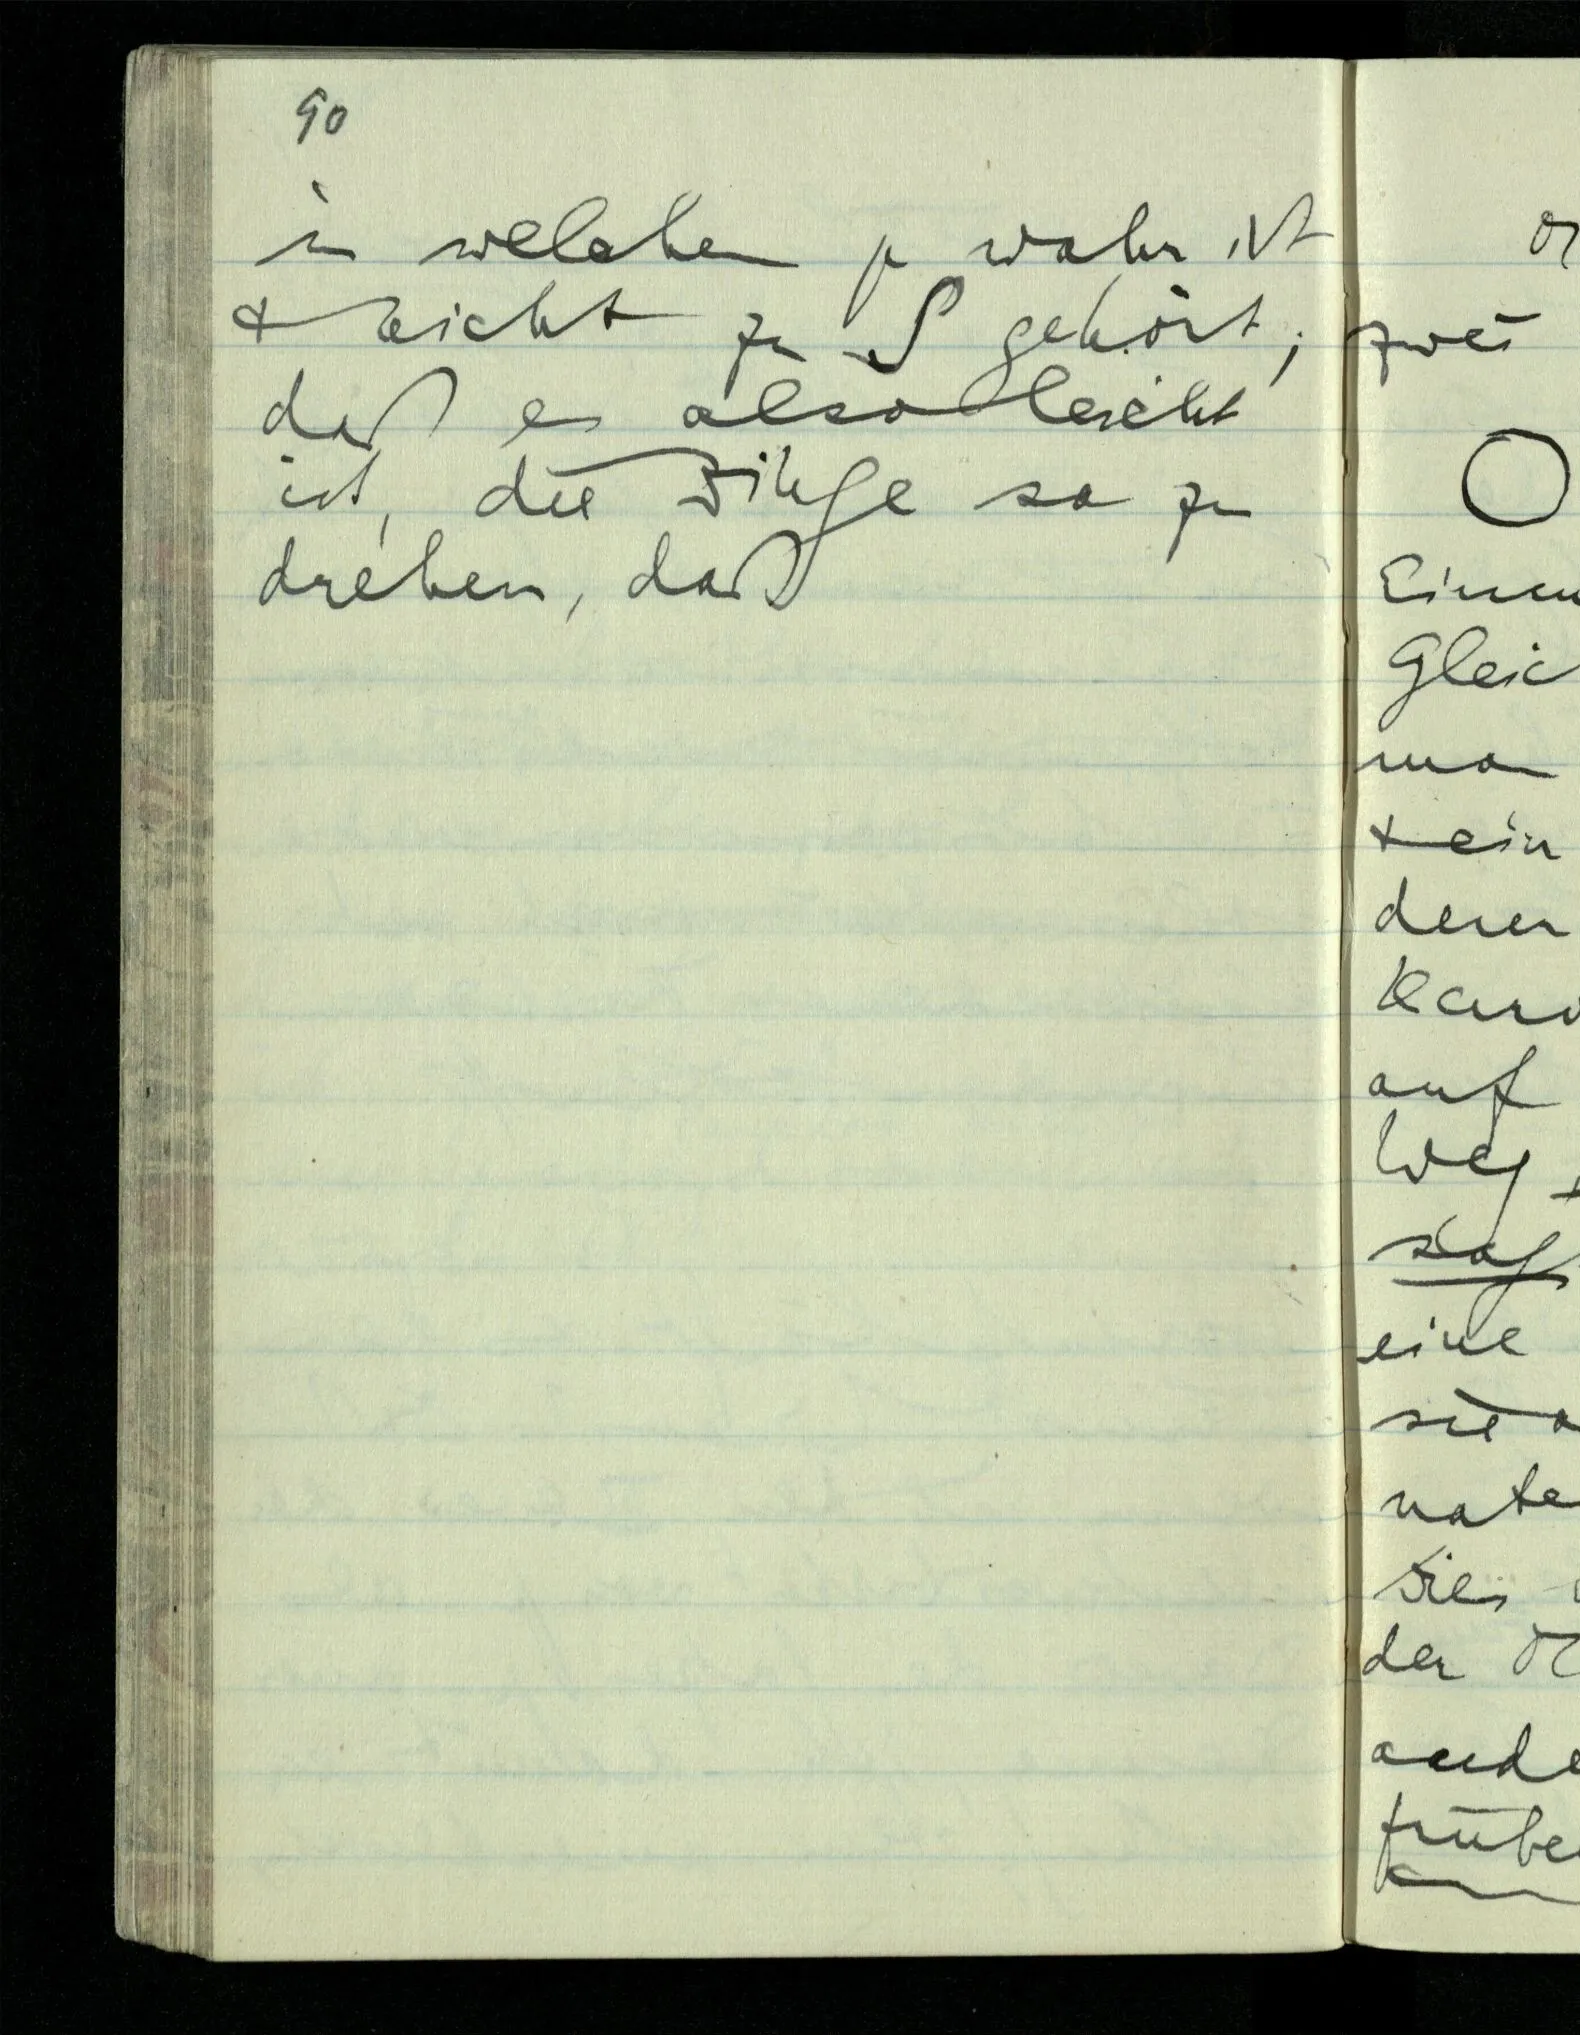 90
in welchem p wahr ist
& leicht zu S gehört;
daß es also leicht
ist, die Dinge so zu
drehen, daß
zwei
Einen
Gleic
man
& ein
deren
auf
Weg
sag
eine
sie a
nate
Dies
der
ande
früher